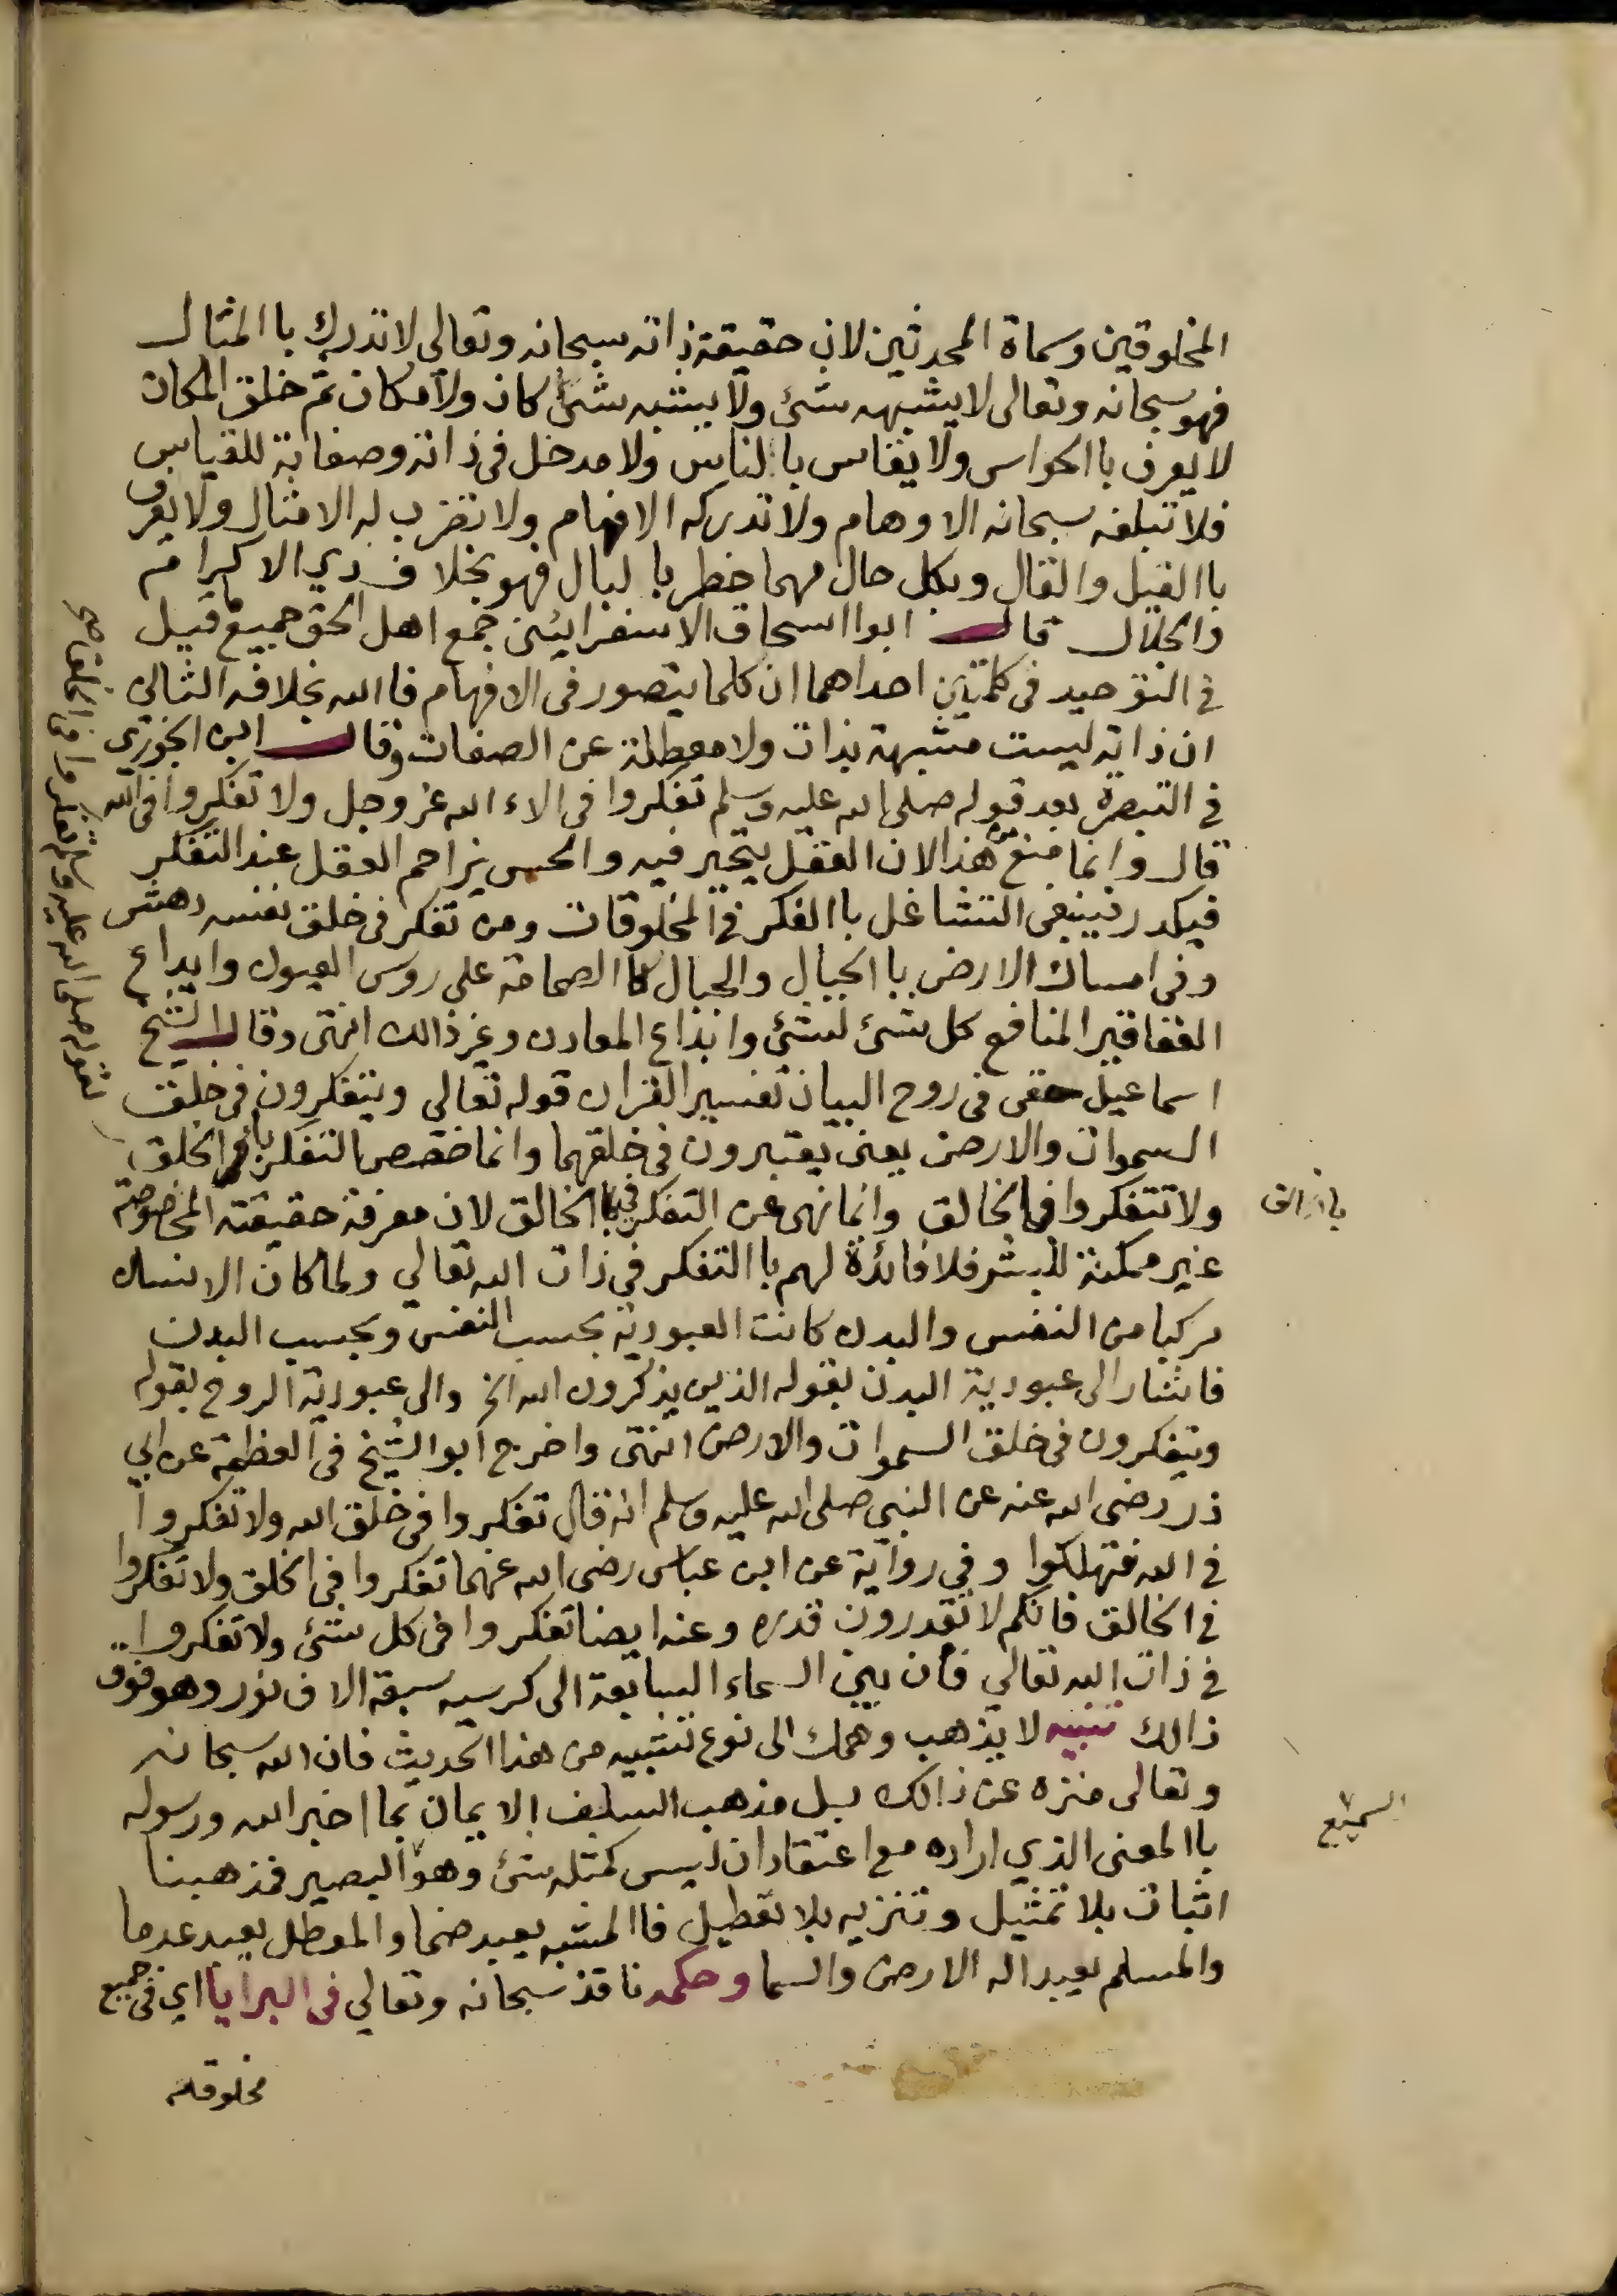 المخلوقين وسماة المحدثين لان حقيقة ذاته سبحانه وتعالى لا تدرك باالمثال
فهو سبحانه وتعالى لا يشبهه شئ ولا يشبه شئ كان ولا مكان ثم خلق المكان
لا يعرف باالحواس ولا يقاس باالناس ولا مدخل في ذاته وصفاته للقياس
فلا تبلغه سبحانه الاوهام ولا تدركه الافهام ولا تضرب له الامثال ولا يعرف
باالقيل والقال وبكل حال مهما خطر باالبال فهو بخلاف ذي الاكرام
والجلال قال ابوا اسحاق الاسفرايئني جمع اهل الحق جميع ما قيل
في التوحيد في كلمتين احداهما ان كلما يتصور في الافهام فاالله بخلافه الثاني
ان ذاته ليست مشبهة بذات ولا معطلة عن الصفات وقال ابن الجوزي
في التبصرة بعد قوله صلى الله عليه وسلم تفكروا في الاء الله عز وجل ولا تفكروا في الله
قال وانما منع من هذا لان العقل يتحير فيه والحس يزاحم العقل عند التفكر
فيكدر فينبغي التشاغل باالفكر في المخلوقات ومن تفكر في خلق نفسه دهش
وفي امساك الارض باالجبال والجبال كاالصمامة على روس العيون وايداع
العقاقير المنافع كل شئ لشئ وابداع المعادن وغير ذالك انتهى وقال الشيخ
اسماعيل حقي في روح البيان تفسير القران قوله تعالى ويتفكرون في خلق
السموات والارض يعني يعتبرون في خلقهما وانما خصص التفكر باالخلق
ولا تتفكروا في الخالق وانما نهى عن التفكر في الخالق لان معرفة حقيقته المخصوصة
غير ممكنة للبشر فلا فائدة لهم باالتفكر في ذات الله تعالى ولما كان الانسان
مركبا من النفس والبدن كانت العبودية بحسب النفس وبحسب البدن
فاشار الى عبودية البدن بقوله الذين يذكرون الله الخ والى عبودية الروح بقوله
ويتفكرون في خلق السموات والارض انتهى واخرج ابو الشيخ في العظمة عن ابي
ذر رضى الله عنه عن النبي صلى الله عليه وسلم انه قال تفكروا في خلق الله ولا تفكروا
في الله فتهلكوا وفي رواية عن ابن عباس رضى الله عنهما تفكروا في الخلق ولا تفكروا
في الخالق فانكم لا تقدرون قدره وعنه ايضا تفكروا في كل شئ ولا تفكروا
في ذات الله تعالى فان بين السماء السابعة الى كرسيه سبعة الاف نور وهو فوق
ذالك تنبيه لا يذهب وهمك الى نوع تشبيه من هذا الحديث فان الله سبحانه
وتعالى منزه عن ذالك بل مذهب السلف الايمان بما اخبر الله ورسوله
باالمعنى الذي اراده مع اعتقاد ان ليس كمثله شئ وهو البصير فمذهبنا
اثبات بلا تمثيل وتنزيه بلا تعطيل فاالمشبه يعبد صنما والمعطل يعبد عدما
والمسلم يعبد اله الارض والسما وحكمه نافذ سبحانه وتعالى في البرايا اي في جميع
مخلوقاته
لقوله صلى الله عليه وسلم تفكروا في الخلق صح
السميع